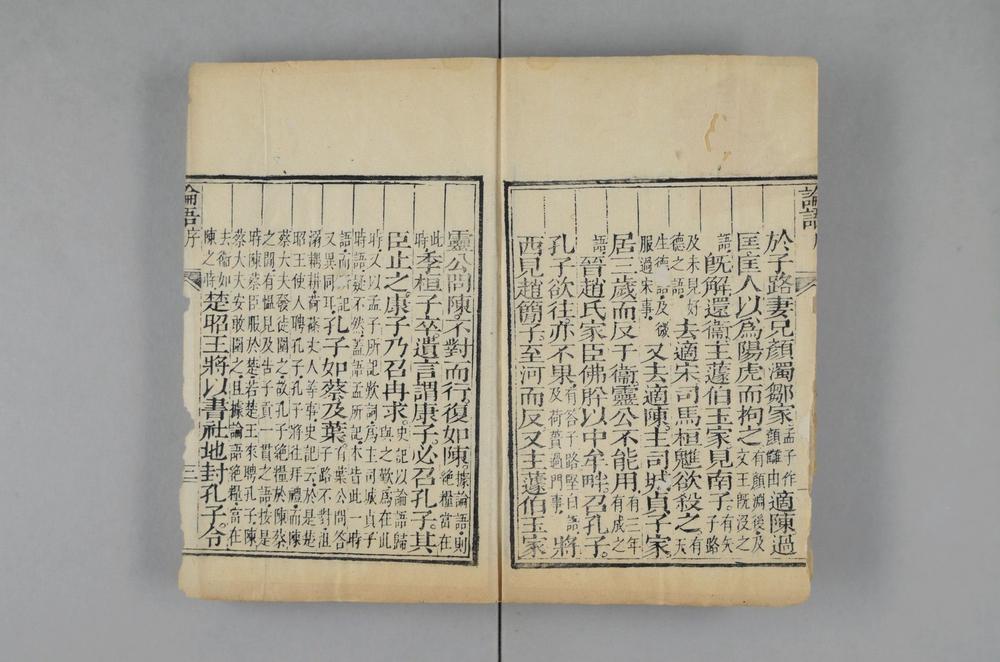 論語序
於子路妻兄顏濁鄒家。孟子作顏讎由適陳過
匡匡人以爲陽虎而拘之。有顏淵後及文王旣沒之
語。旣解還衞主蘧伯玉家見南子。有矢子路
及未見好德之語。去適宋司馬桓魋欲殺之。有天
生德語及微服過宋事。又去適陳。主司城貞子家。
居三歲而反于衞靈公不能用。有三年有成之
語。晉趙氏家臣佛肸以中牟畔。召孔子。
孔子欲往亦不果。有荅子路堅白語及荷蕢過門事。將
西見趙簡子。至河而反又主蘧伯玉家
靈公問陳。不對而行復如陳。據論語則絕糧當在
此時。季桓子卒。遺言謂康子。必召孔子。其
臣止之。康子乃召冉求。史記以論語歸與之歎爲在此
時。又以孟子所記歎詞。爲主司城貞子時語疑不然。蓋語孟所記。本皆此一時
語。而所記又異同耳。孔子如蔡及葉。有葉公問答子路不對沮
溺耦耕。荷蓧丈人等事。史記云。於是楚昭王使人聘孔子。孔子將往拜禮。而陳
蔡大夫發徒圍之。故孔子絕糧於陳蔡之閒有慍見及告子貢一貫之語。按是
時陳蔡臣服於楚。若楚王來聘孔子。陳蔡大夫安敢圍之。且據論語絕糧。當在
去衞如陳之時。楚昭王將以書社地封孔子。令
論語序
三